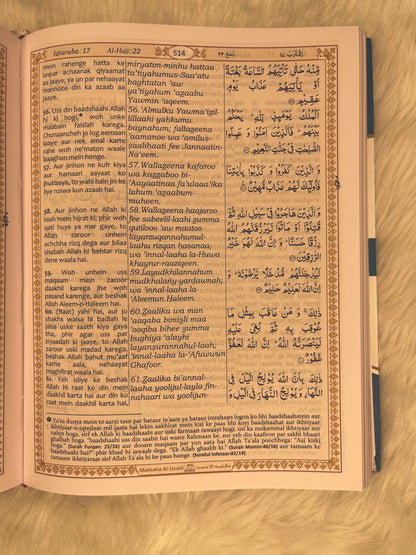 Iqtaraba: 17
Al-Hajj: 22
514
الحج ٢٢
اقترب ١٧
mein rahenge hatta ke
unpar achaanak qiyaamat
aa jaaye, ya un par nehaayat
manhoos din ka azaab aa
jaaye.
56. Uss din baadshaahi Allah
hi ki hogi, woh unke
maabain faislah karega.
Chunaancheh jo log eemaan
laaye aur nek amal karte
rahe woh ne'maton waale
baaghon mein honge.
57. Aur jinhon ne kufr kiya
aur hamaari aayaat ko
jhutlaaya, to wahi bain jin ke
liye ruswa kun azaab hai.
58. Aur jinhon ne Allah ki
raah mein hijrat ki, phir woh
qatl huye ya mar gaye,
Allah zaroor unhein
achchha rizq dega aur bilaa
shubah Allah hi behtar rizq
dene waala hai.
59. Woh unhein uss
maqaam mein zaroor
daakhil karega jise woh
pasand karenge, aur beshak
Allah Aleem-o-Haleem hai.
60. (Baat) yahi hai, aur jo
shakhs waisa hi badlah le
jaisa uske saath kiya gaya
tha, phir us par ziyaadti ki
jaaye, to Allah zaroor
uski madad karega,
beshak Allah bahut mu'aaf
karne aala, nehaayat
maghfirat waala hai.
61. Yeh isliye ke beshak
Allah hi raat ko din mein
daakhil karta hai aur din ko
raat mein daakhil karta hai,
miryatim-minhu hattaa
ta'tiyahumus-Saa'atu
baghtatan 'aw
ya'tiyahum 'azaabu
Yawmin 'aqeem.
56. 'Almulku Yawma'izil-
lillaahi yahkumu
baynahum; fallazeena
'aamanoo wa 'amilus-
saalihaati fee Jannaatin-
Na'eem.
57. Wallazeena kafaroo
wa kazzaboo bi-
'Aayaatinaa fa'ulaaa'ika
lahum 'azaabum-
muheen.
58. Wallazeena haajaroo
fee sabeelil-laahi summa
qutilooo 'aw maatoo
layarzuqannahumul-
laahu rizqan hasanaa;
wa 'innal-laaha la-Huwa
khayrur-raaziqeen.
59. Layudkhilannahum
mudkhalany-yardawnah;
wa 'innal-laaha la-
'Aleemun Haleem.
60. Zaalika wa man
'aaqaba bimisli maa
'ooqiba bihee summa
bughiya 'alayhi
layansurannahul-laah;
'innal-laaha la-'Afuwwun
Ghafoor.
61. Zaalika bi'annal-
laaha yoolijul-layla fin-
nahaari wa yoolijun-
مِّنْهُ حَتّٰى تَأْتِيَهُمُ السَّاعَةُ بَغْتَةً
أَوْ يَأْتِيَهُمْ عَذَابُ يَوْمٍ
عَقِيمٍ
اَلْمُلْكُ يَوْمَئِذٍ لِّلّٰهِ يَحْكُمُ
بَيْنَهُمْ فَالَّذِينَ آمَنُوا وَ عَمِلُوا
الصّٰلِحٰتِ فِي جَنّٰتِ النَّعِيمِ
وَ الَّذِينَ كَفَرُوا وَ كَذَّبُوا بِاٰيٰتِنَا
فَأُولٰٓئِكَ لَهُمْ عَذَابٌ مُّهِينٌ
وَ الَّذِينَ هَاجَرُوا فِي سَبِيلِ اللّٰهِ ثُمَّ
قُتِلُوا أَوْ مَاتُوا لَيَرْزُقَنَّهُمُ اللّٰهُ
رِزْقًا حَسَنًا وَ إِنَّ اللّٰهَ لَهُوَ خَيْرُ
الرّٰزِقِينَ
لَيُدْخِلَنَّهُمْ مُّدْخَلًا يَّرْضَوْنَهُ وَ
إِنَّ اللّٰهَ لَعَلِيمٌ حَلِيمٌ
ذٰلِكَ وَ مَنْ عَاقَبَ بِمِثْلِ مَا
عُوقِبَ بِهِ ثُمَّ بُغِيَ عَلَيْهِ
لَيَنْصُرَنَّهُ اللّٰهُ إِنَّ اللّٰهَ لَعَفُوٌّ
غَفُورٌ
ذٰلِكَ بِأَنَّ اللّٰهَ يُولِجُ الَّيْلَ فِي
النَّهَارِ وَ يُولِجُ النَّهَارَ فِي الَّيْلِ
Ya'ni dunya mein to aarzi taur par bataur in'aam ya bataur imtehaan logon ko bhi baadshaahatein aur
ikhtiyaar-o-iqtedaar mil jaata hai lekin aakhirat mein kisi ke paas bhi koyi baadshaahat aur ikhtiyaar
nahin hoga, sirf ek Allah ki baadshaahi aur uski farmaan rawaayi hogi, usi ka mukammal ikhtiyaar aur
ghalbah hoga. "baadshaahi uss din saabit hai waste Rahmaan ke, aur yeh din kaafiron par sakht bhaari
hoga." (Surah Furqan: 25/26) aur doosre maqaam par yun aata hai Allah Ta'ala poochhega: "Aaj kiski
baadshaahi hai?" phir khud hi jawaab dega. "Ek Allah ghaalib ki." (Surah Momin:40/16) aur tamaam ke
tamaam ikhtiyaraat sirf Allah Ta'ala hi ke paas honge. (Suratul Infetaar:82/19)
Maktaba Al-Usaid